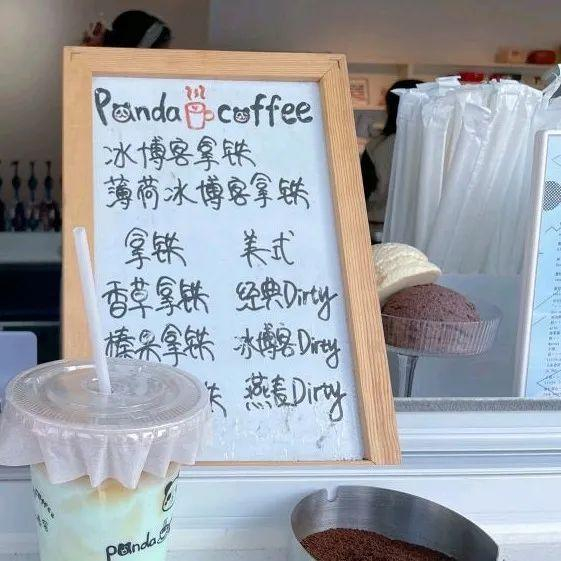 Panda coffee
冰博客拿铁
薄荷冰博客拿铁
拿铁 美式
香草拿铁 经典Dirty
榛果拿铁 冰博客Dirty
铁 燕麦Dirty
panda